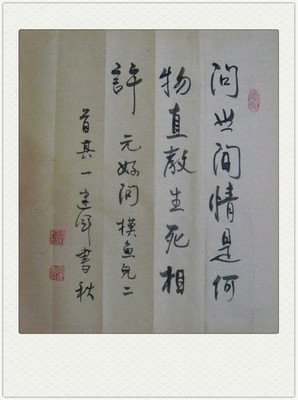 问世间情是何
物直教生死相
許 元好问摸魚兒二
首其一 書秋